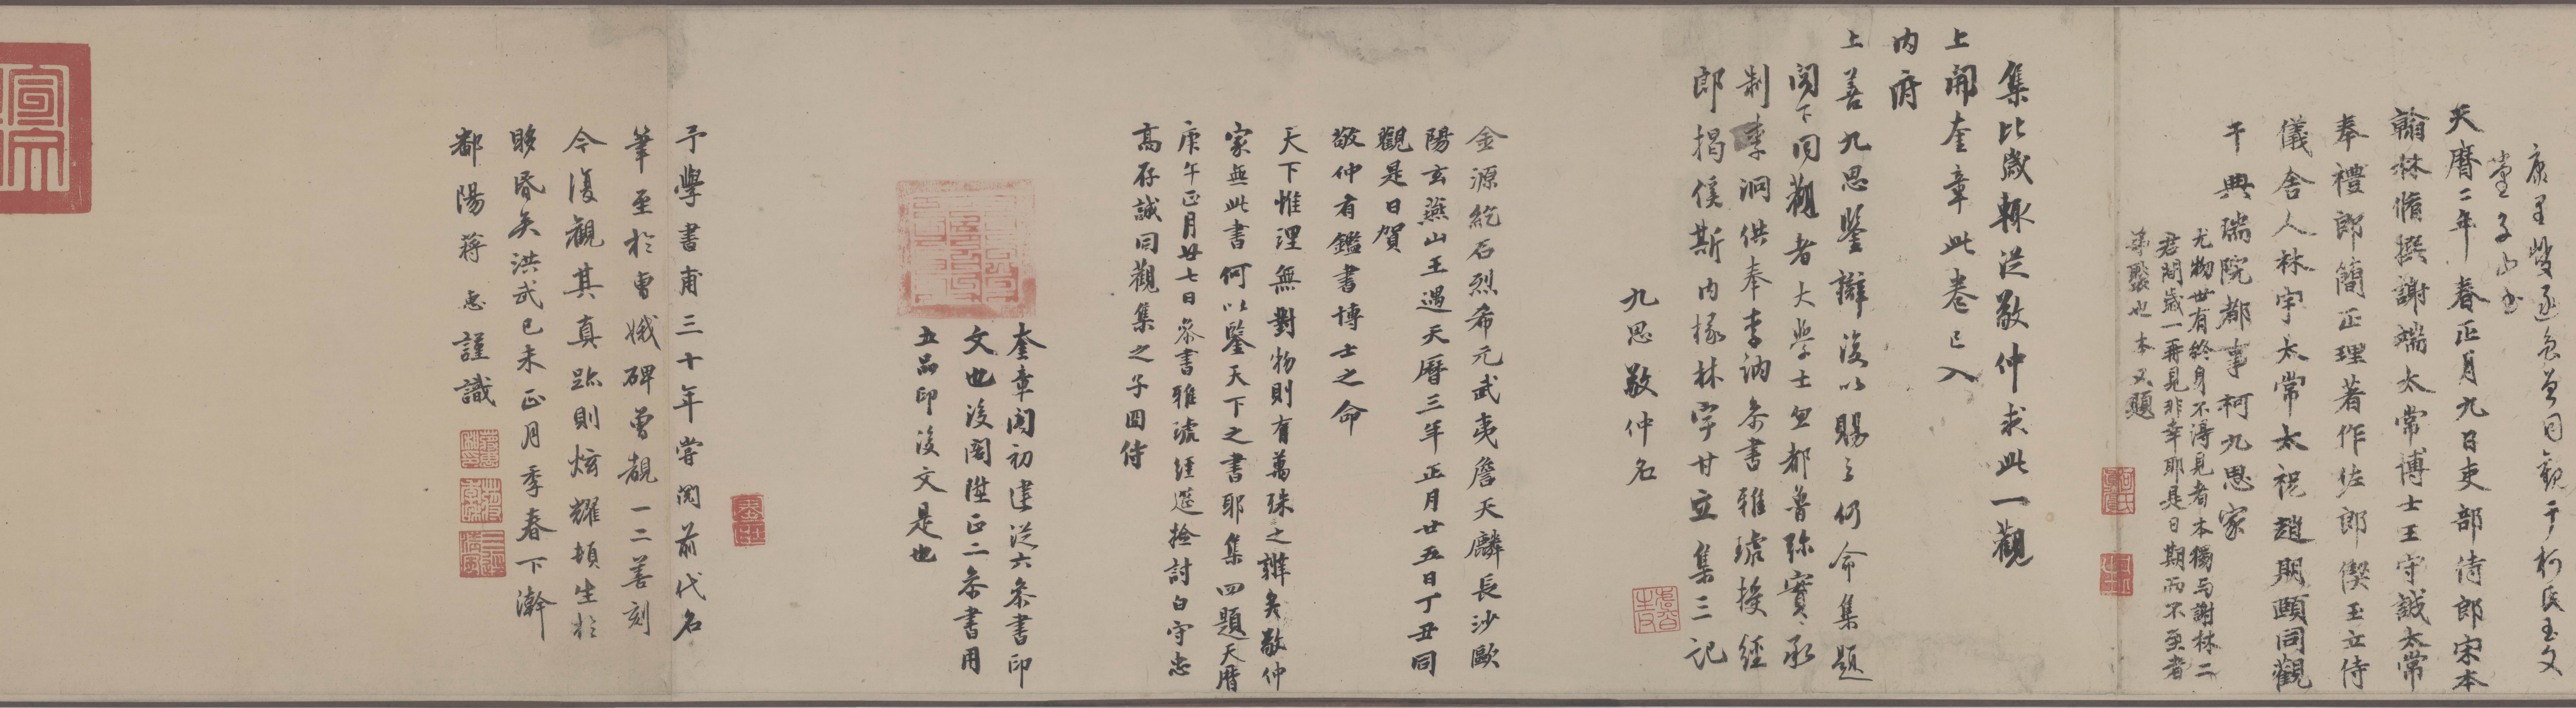 康里巎巎子山書
天曆二年春正月九日吏部侍郎宋本
翰林脩撰謝端太常博士王守誠太常
奉禮郎簡正理著作佐郎偰玉立侍
儀舍人林宇太常太祝趙期頤同觀
于典瑞院都事柯九思家
尤物世有終身不得見者本獨与謝林二
君間歲一再見非幸耶是日期而不至者
本又題
集比歲輒從敬仲求此一觀
上開奎章此卷已入
內府
上善九思鑒辯復以賜之仍命集題
閣下同觀者大學士忽都魯彌實承
制李洞供奉李訥參書雅琥授經
郎揭傒斯內掾林宇甘立集三記
九思敬仲名
金源紇石烈希元武夷詹天麟長沙歐
陽玄燕山王遇天曆三年正月廿五日丁丑同
觀是日賀
敬仲有鑑書博士之命
天下惟理無對物則有萬殊之辨矣敬仲
家無此書何以鑒天下之書耶集四題天曆
庚午正月廿七日參書雅琥經筵撿討白守忠
高存誠同觀集之子㘣侍
奎章閣初建從六參書印
文也後閣陞正二參書用
五品印後文是也
予學書甫三十年嘗閱前代名
筆至於曹娥碑曾覩一二善刻
今復觀其真跡則炫耀頓生於
眵昏矣洪武己未正月季春下澣
鄱陽蔣惠謹識